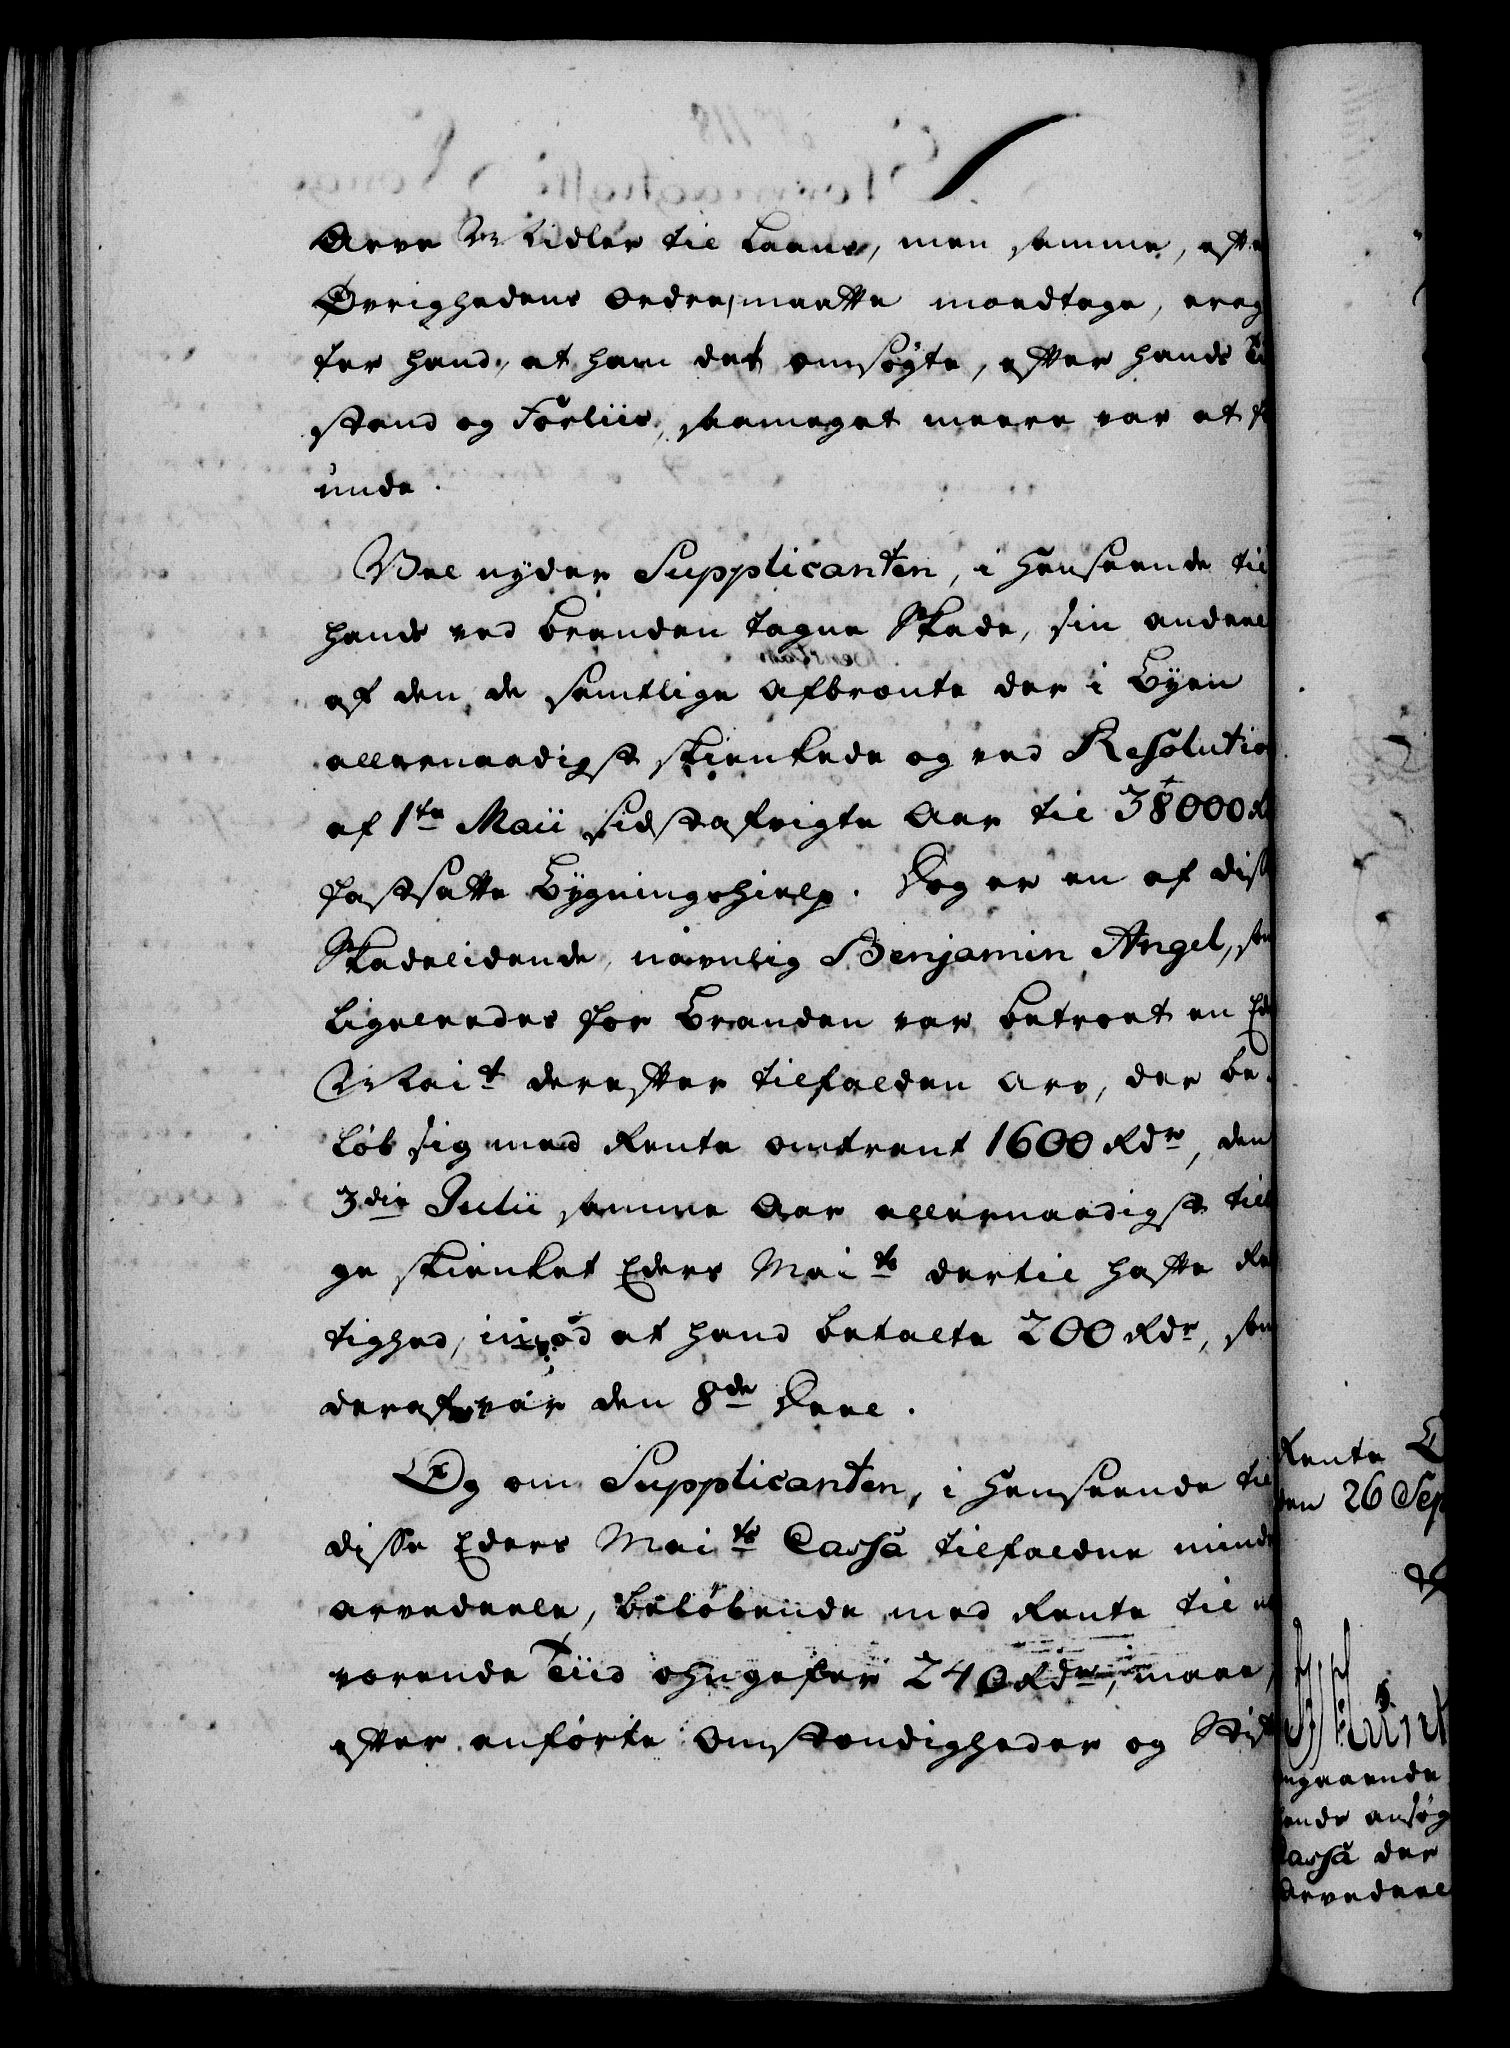 Arve Midler til Laans, men samme, efte
Øvrighedens Ordre, maatte modtage, erag
ter hand, at ham det ansøgte, efter hands Ti
stand og Forliis, saameget meere var at
unde.
Vel nyder Supplicanten, i Henseende til
hands ved Branden tagne Skade, sin andeel
af den de samtlige Afbrente der i Byen
allernaadigst skienkede og ved Resolutio
af 1te Maii sidstafvigte Aar til 38000 R
fastsatte Bygningshielp. Dog er en af dis
Skadelidende, nævnlig Benjamin Angel, som
ligeleedes for Branden var betroet en Ed
Mait derefter tilfalden Arv, der be-
løb sig med Rente omtrent 1600 Rdr, den
3die Julii samme Aar allernaadigst till
ge skienket Eders Maits dertil hafte Re
tighed, imod at hand betalte 200 Rdr, som
deraf var den 8de Deel.
Og om Supplicanten, i Henseende til
disse Eders Maits Cassa tilfaldne mind
arvedeele, beløbende med Rente til n
værende Tiid ohngefer 240 Rdr, maae,
efter anførte Omstændigheder og Stif
Rente
den 26 Sep
angaaende
hands ansøg
Cassa der
Arvedeel